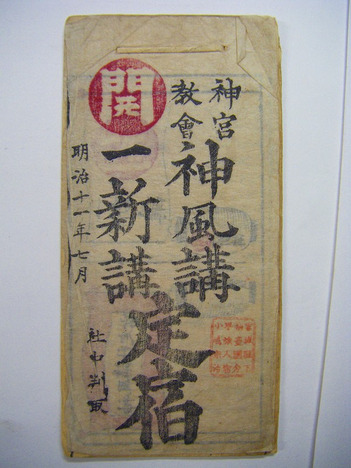 神宮
教會
神風講
一新講
定宿
明治十一年七月
社中判取
開